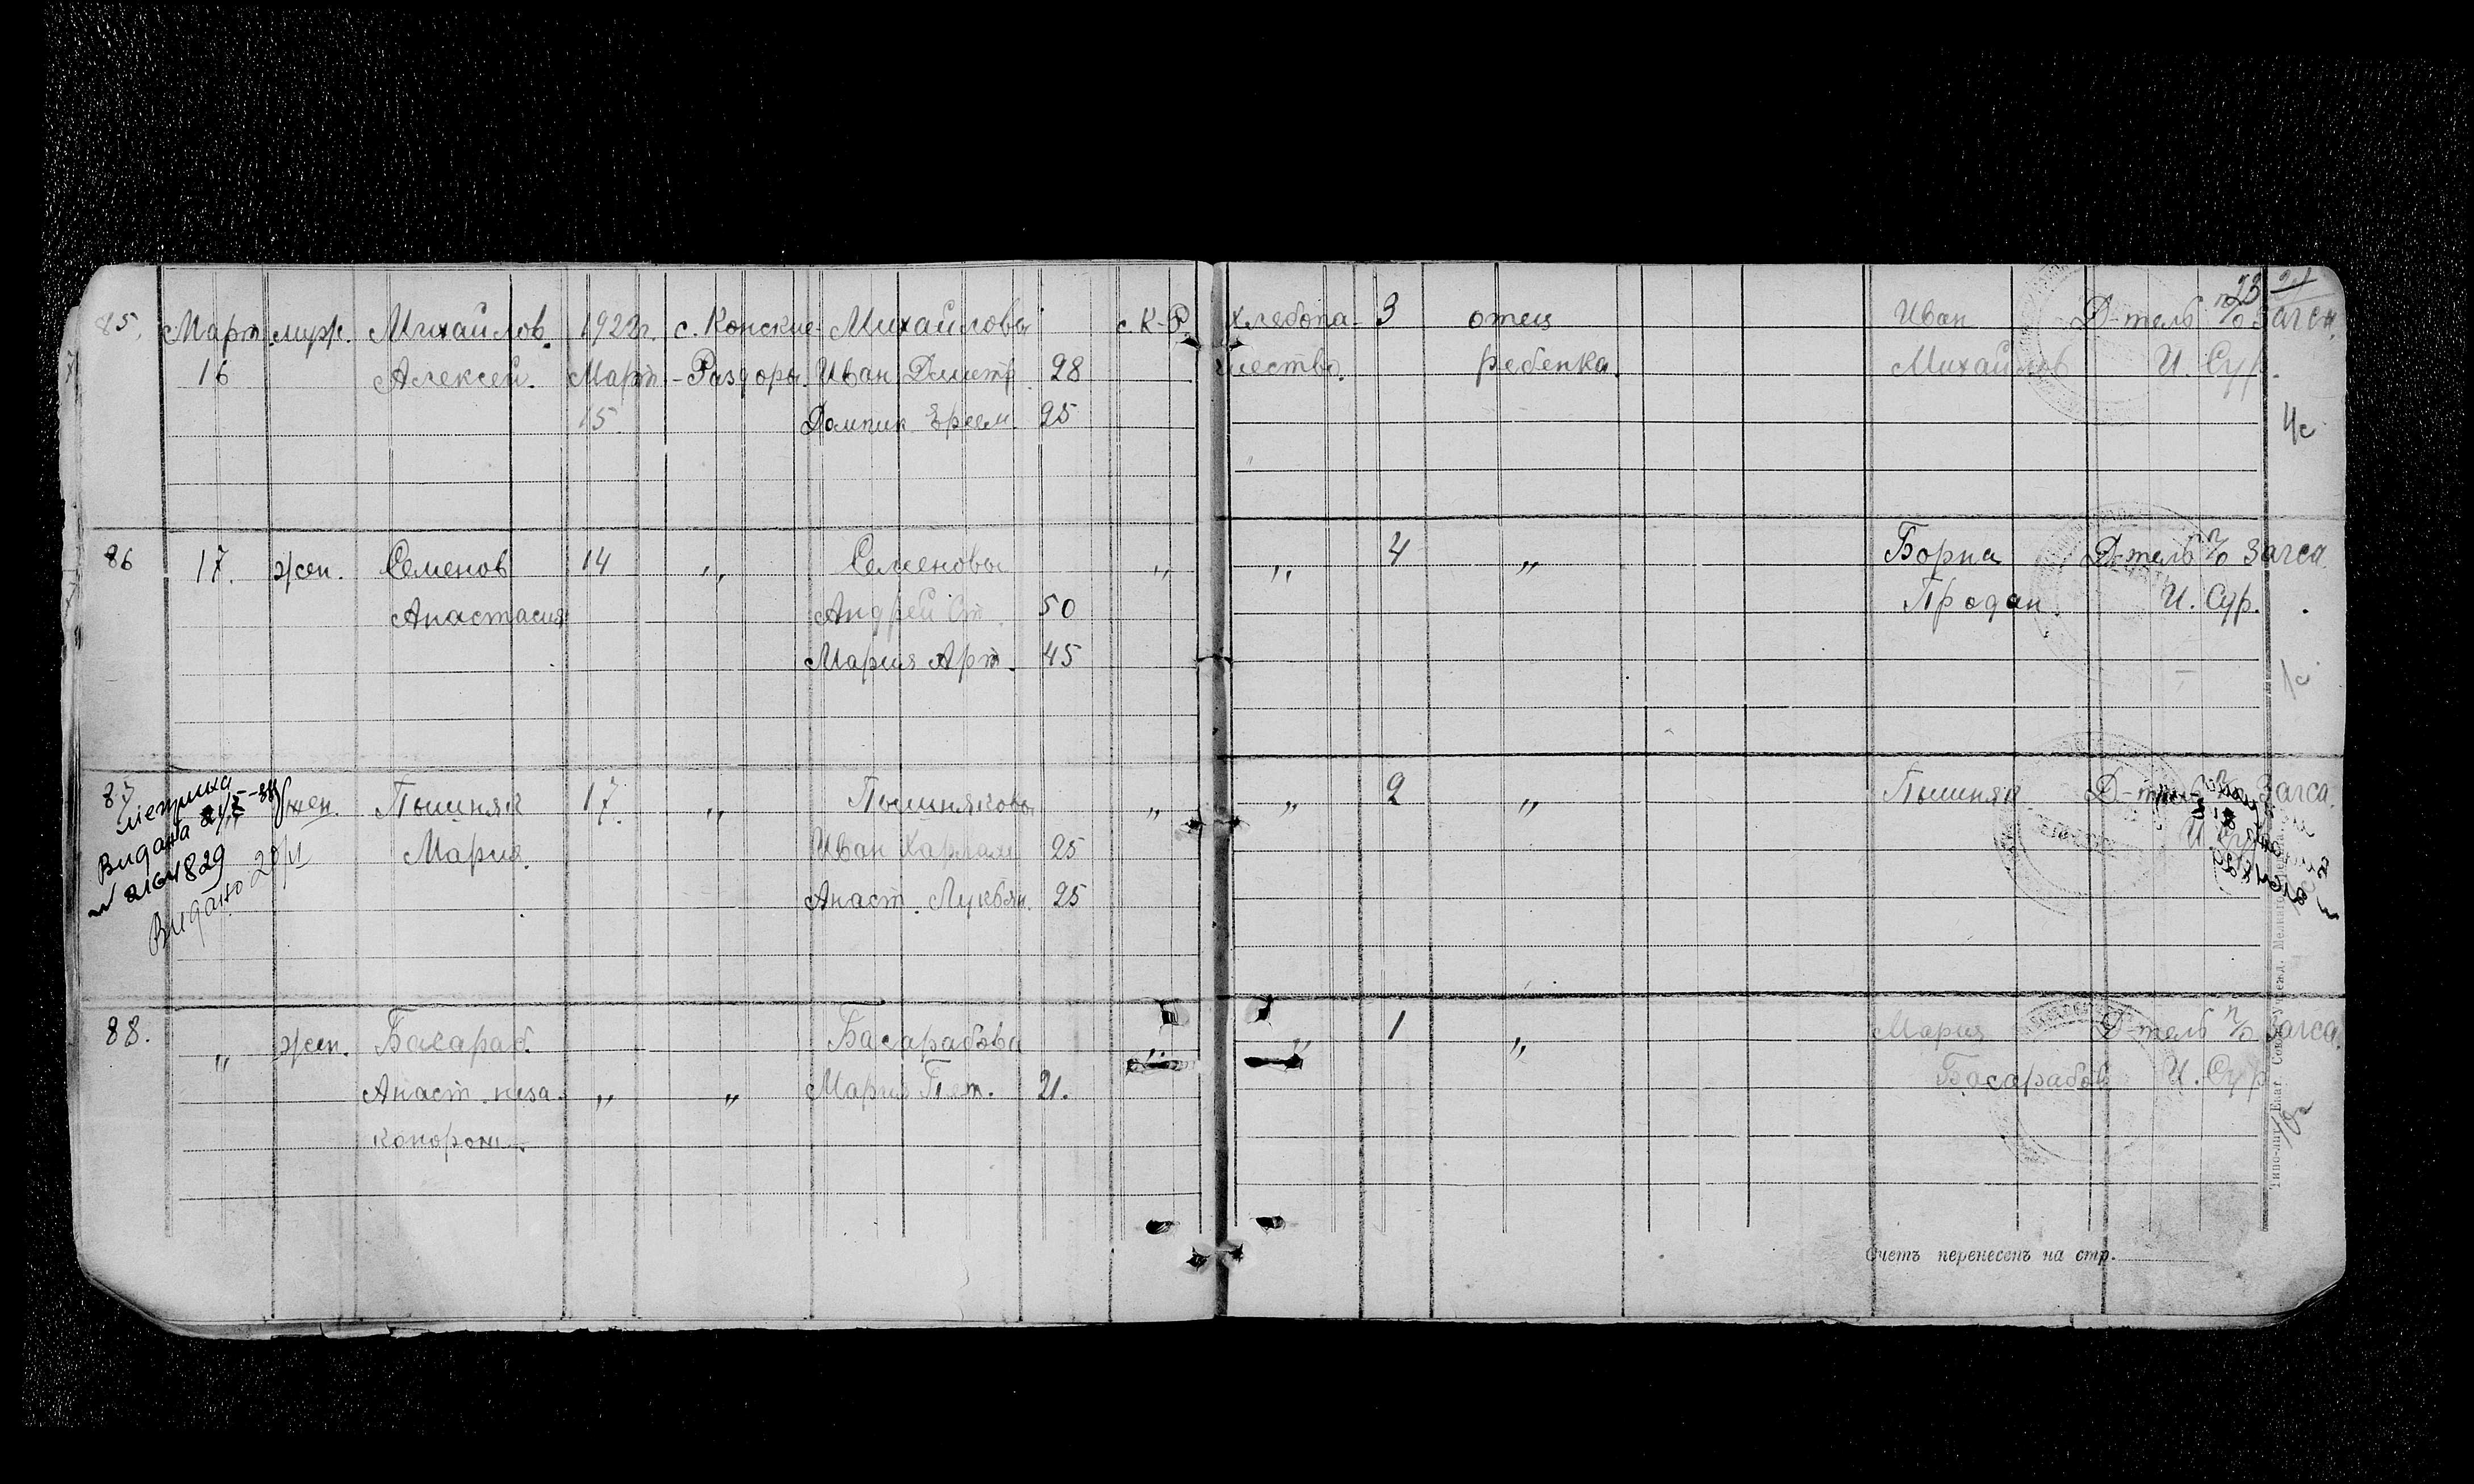 23 21
85. Март муж. Михайлов 1922г. с. Конские- Михайловы с. К-Р. хлебопа- 3 отец Иван Д-тель п/о Загса.
16 Алексей. Март -Раздоры. Иван Дмитр. 28 шество. ребенка. Михайлов И. Сур.
15. Домник. Ерем. 25
86 17. жен. Семенов 14 „ Семеновы „ „ 4 „ Борис Д-тель п/о Загса.
Анастасия Андрей Ст. 50 Продан. И. Сур.
Мария Арт. 45
87 жен. Пышняк 17. „ Пышняковы „ „ 2 „ Пышняк Д-тель п/о Загса.
метрика
Видана
Мария. Иван Харлам. 25
№ 2164829
Видано
Анаст. Лукьян. 25
88. „ жен. Басараб. Басарабова „ „ 1 „ Мария Д-тель п/о Загса.
Анаст. неза- „ „ Мария Пет. 21. Басарабов И. Сур.
конорож.
Счетъ перенесенъ на стр.